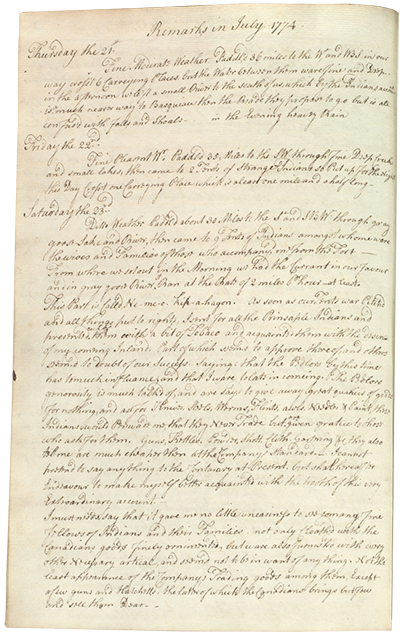 Remarks in July 1774
Thursday the 21st
Fine Pleasant Weather Paddled 36 miles to the W and WBS in our
way crost 6 Carrying Places but the Water between them ware fine and Deep
in the afternoon we left a small River to the south of us, which by the Indians
is much nearer way to Basquiau then the this we purpose to go but is all
confused with falls and Shoals — in the Evening heavy Rain
Friday the 22d
Fine Pleasant Wr. Paddled 35 Miles to the SW. through fine Deep
and small lakes, then came to 2 Tents of Strange Indians so Put up for the Night
this Day Crost one Carrying Place which is about one mile and a half long
Saturday the 23d
Ditto Weather Padled about 38 Miles to the S and SBW through
good Lake and River, then came to 9 Tents of Indians amongst whome were
the wives and Families of those who accompanyd me from the Fort —
From where we set out in the Morning we had the Currant in our favour
and in many good River, Ran at the Rate of 2 miles Pr hour at least.
This Part is called As soon as our Tents war Pitched
and all things put to rights, I sent for all the Prinsaple Indians and
presented them with a bit of Tobaco and acquainted them with the
of my coming Inland. Part of which seemed to approve thereof and others
seemed to doubt of our success. Saying that the Pedlers by this time
has to much influance, and that I ware to late in comeing. The Pedlers
generosity is much talked of, and are says to give away great quantes of goods
for nothing, and as for Knives, Steels, Worms, Flints, awls, Needles & Paint, these
Indians would Perswade me that they Never Trade but given gratice to those
who ask for them. Guns, Kettles, Powder, Shott, Cloth, Gartering &c they also
tell me are much cheaper then at the Companys Standard — I cannot
pretend to say anything to the Contuary at Present, but shall hereafter
Endeavour to make myself better acquainted with the trooth of this very
Extraordinary account —
I must needs say that it gave me no little uneasiness to see so many fine
fellows of Indians and their Families not only Cloathed with the
Canadians goods finely ornimented, but ware also furnished with every
other Necessary artical, and seems not to be in want of any thing. Not the
least appearance of the Companys Trading goods among them, Except
a few guns and Hatchetts the latter of which the Canadians brings but few
and sell them Dear —